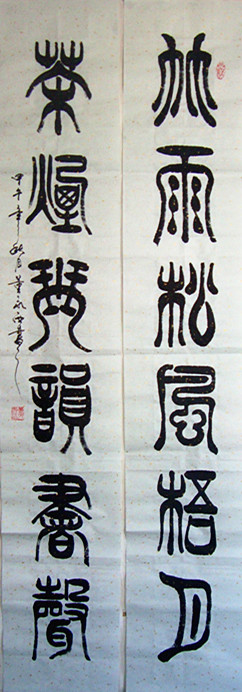 竹雨松風梧月
茶煙琴韻書聲
甲午年秋月董永西書